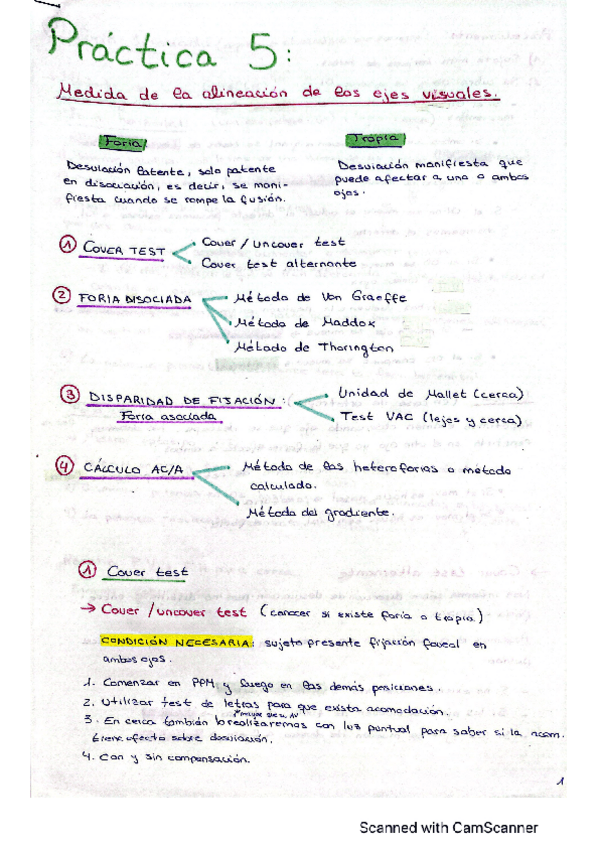 Práctica 5:
Medida de la alineación de los ejes visuales.
Foria
Desviación latente, solo patente
en disociación, es decir, se mani-
fiesta cuando se rompe la fusión.
Tropia
Desviación manifiesta que
puede afectar a uno o ambos
ojos.
① COVER TEST
Cover / uncover test
Cover test alternante
② FORIA DISOCIADA
Método de Von Graeffe
Método de Maddox
Método de Thorington
③ DISPARIDAD DE FIJACIÓN:
Foria asociada
Unidad de Mallet (cerca)
Test VAC (lejos y cerca)
④ CÁLCULO AC/A
Método de las heteroforias o método
calculado.
Método del gradiente.
① Cover test
→ Cover / uncover test (conocer si existe foria o tropia)
CONDICIÓN NECESARIA: sujeto presente fijación foveal en
ambos ojos.
1. Comenzar en PPM y luego en las demás posiciones.
2. Utilizar test de letras para que exista acomodación.
3. En cerca también lo realizaremos con luz puntual para saber si la acom.
tiene efecto sobre desviación.
4. Con y sin compensación.
1
Scanned with CamScanner